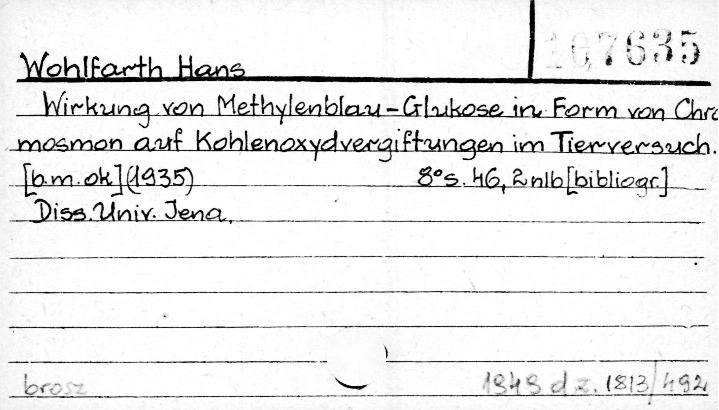 107635
Wohlfarth Hans
Wirkung von Methylenblau-Glukose in Form von Chro
mosmon auf Kohlenoxydvergiftungen im Tierversuch.
[b.m.ok](1935) 8°s. 46, 2nlb[bibliogr.]
Diss. Univ. Jena.
brosz 1949 dz. 1813/492